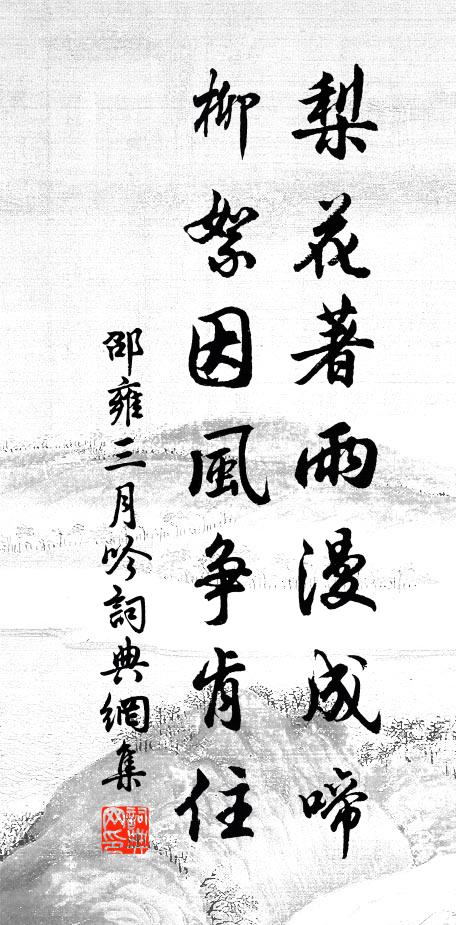 梨花著雨漫成啼
柳絮因風争肯住
邵雍三月吟詞典網集